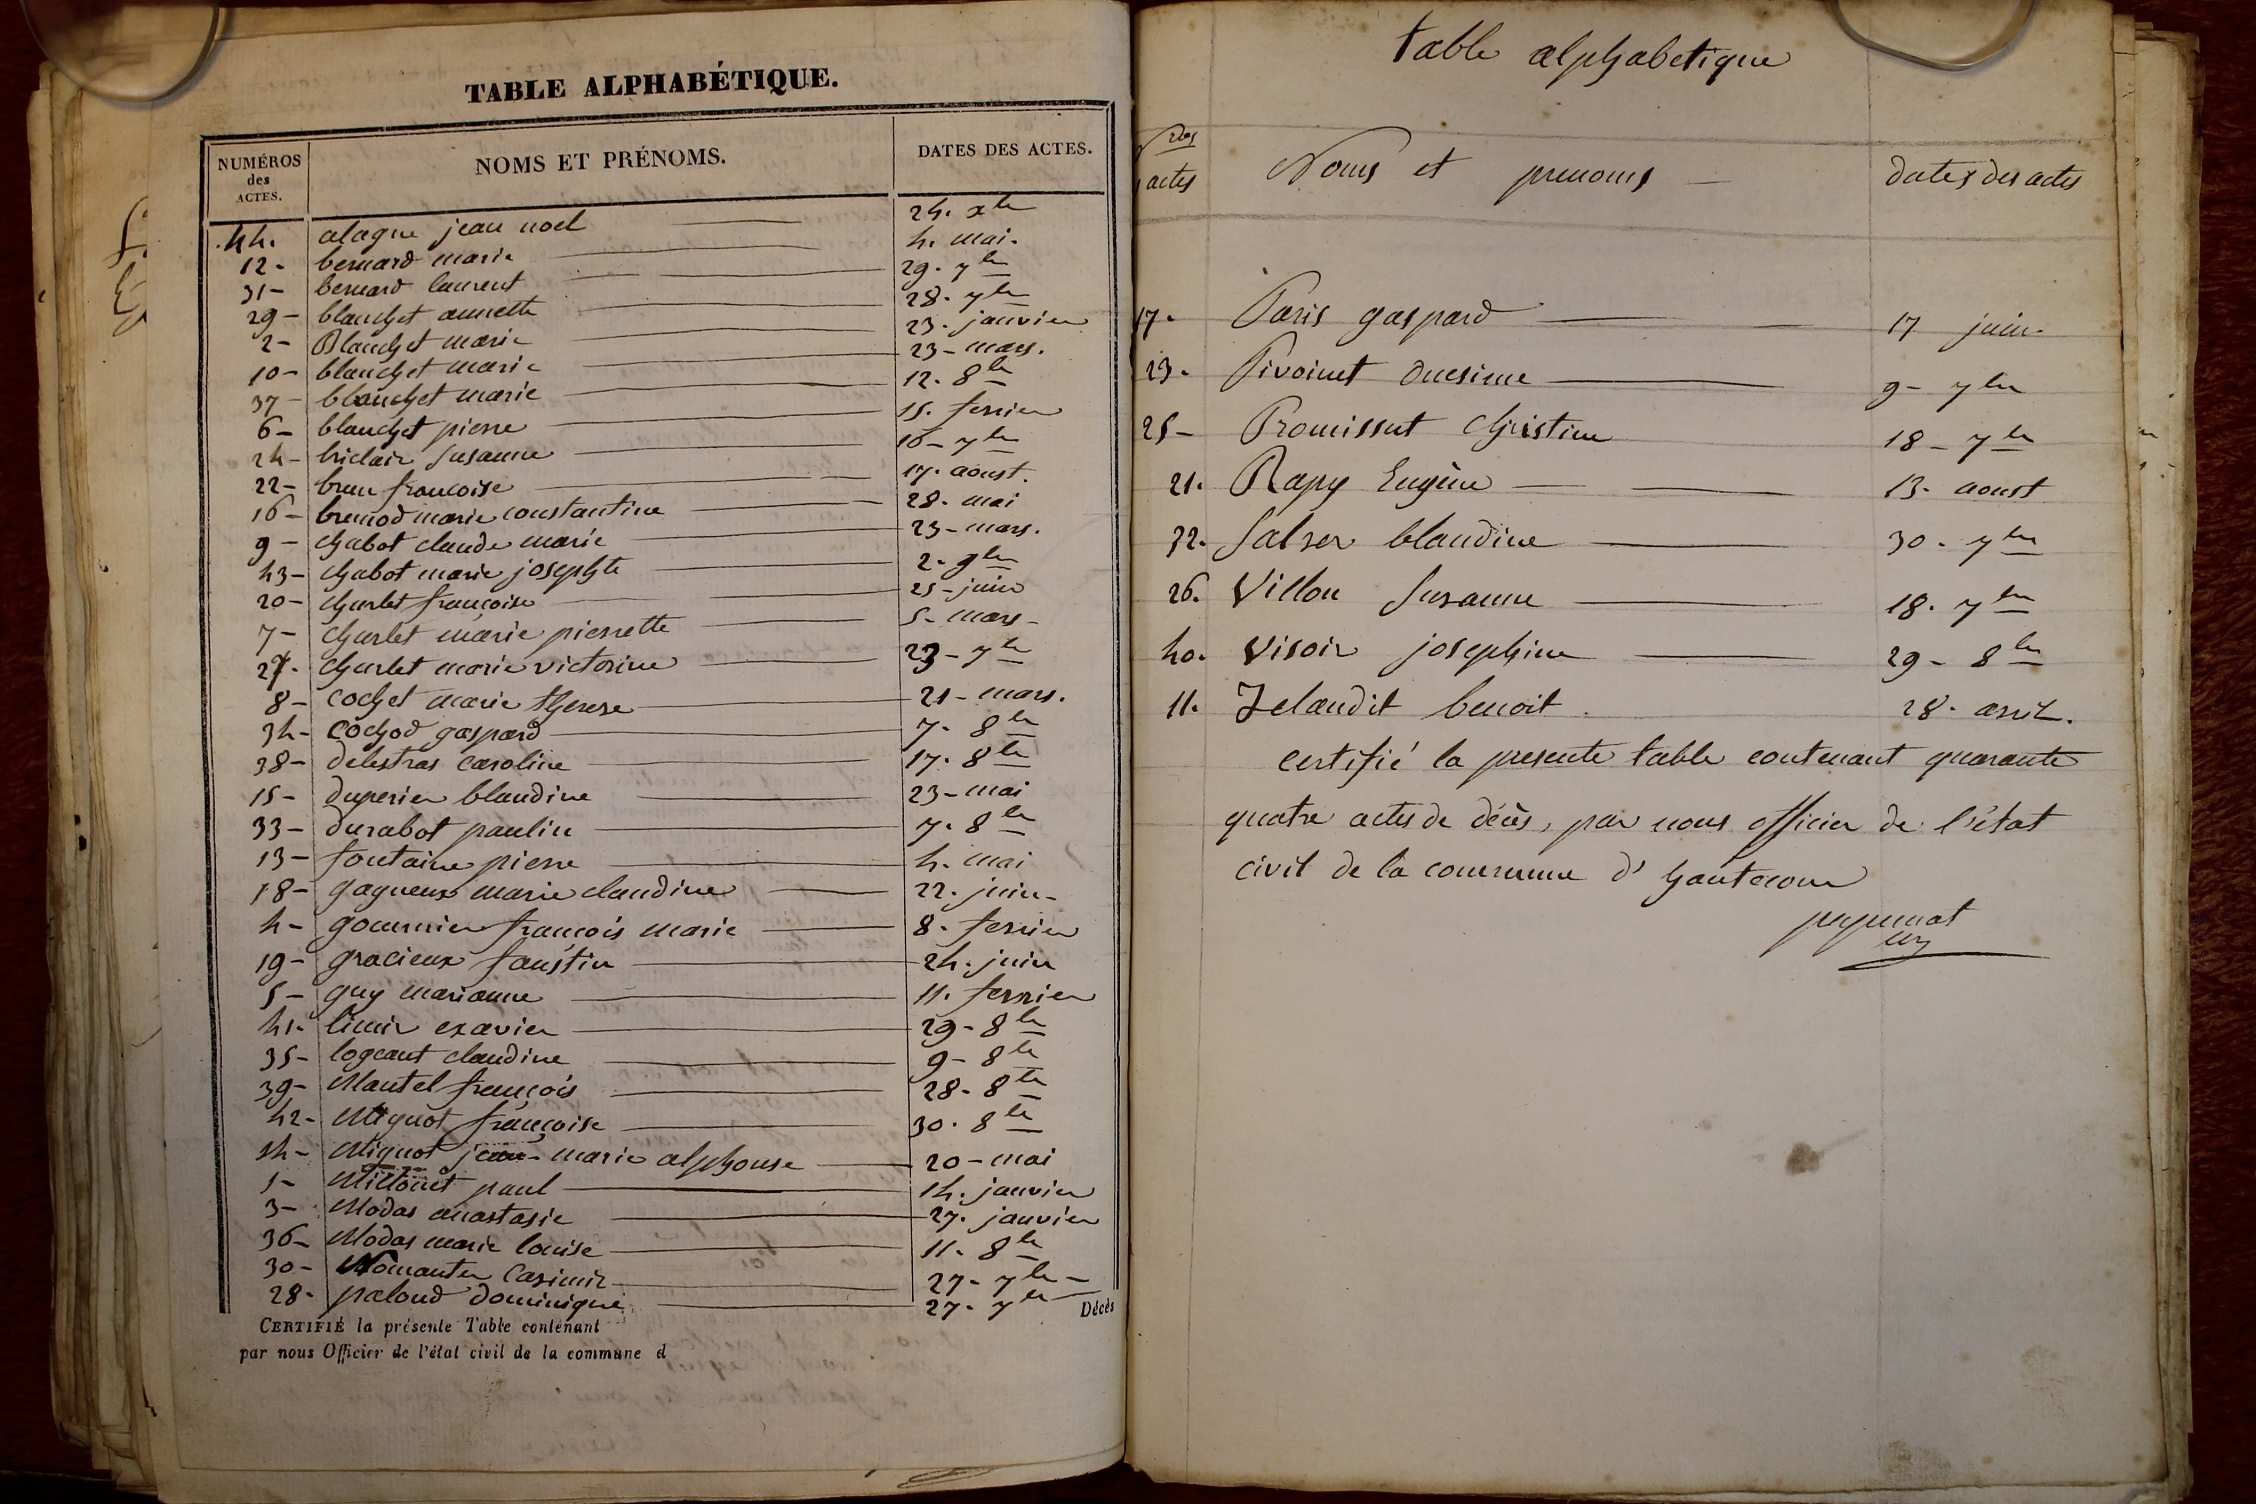 TABLE ALPHABÉTIQUE.
NUMÉROS des ACTES. NOMS ET PRÉNOMS. DATES DES ACTES.
44. alagne jean noel 24. xbre
12- bernard marie 4. mai.
31- bernard laurent 29. 7bre
29- blanchet annette 28. 7bre
2- Blanchet marie 23. janvier
10- blanchet marie 23- mars.
37- blanchet marie 12. 8bre
6- blanchet pierre 15. fevrier
24- briclair Susanne 16- 7bre
22- brun francoise 17. aoust.
16- brunod marie constantine 28. mai
9- chabot claude marie 23- mars.
43- chabot marie josephte 2. 9bre
20- charlet francoise 25- juin
7- charlet marie pierrette 5- mars-
27. charlet marie victorine 23- 7bre
8- cochet marie therese 21- mars.
34- cochod gaspard 7. 8bre
38- delestras caroline 17. 8bre
15- duperier blandine 23- mai
33- durabot paulin 7. 8bre
13- fontaine pierre 4. mai
18- gagneux marie claudine 22. juin-
4- gournier francois marie 8. fevrier
19- gracieux faustin 24. juin
5- guy marianne 11. fevrier
41. limir exavier 29- 8bre
35- logeant claudine 9- 8bre
39- Mantel francois 28- 8bre
42- Mignot françoise 30. 8bre
14- Mignot jean-marie alphonse 20- mai
1- Millonet paul 14. janvier
3- Modas anastasie 27. janvier
36- Modas marie louise 11. 8bre
30- Nomanter Casimir 27- 7bre-
28. paloud dominique 27. 7bre
Décès
CERTIFIÉ la présente Table contenant
par nous Officier de l'état civil de la commune d
table alphabetique
Nros actes Noms et prenoms - dates des actes
17. Paris gaspard 17 juin.
23. Pivoinet onesime 9- 7bre
25- Promissut Christine 18- 7bre
21. Rapy Eugène 13. aoust
32. Salser blandine 30. 7bre
26. Villon Susanne 18. 7bre
40. Visoir josephine 29- 8bre
11. Jelandit benoit. 28. avril.
certifié la presente table contenant quarante
quatre actes de décès, par nous officier de l'état
civil de la commune d'hautecour